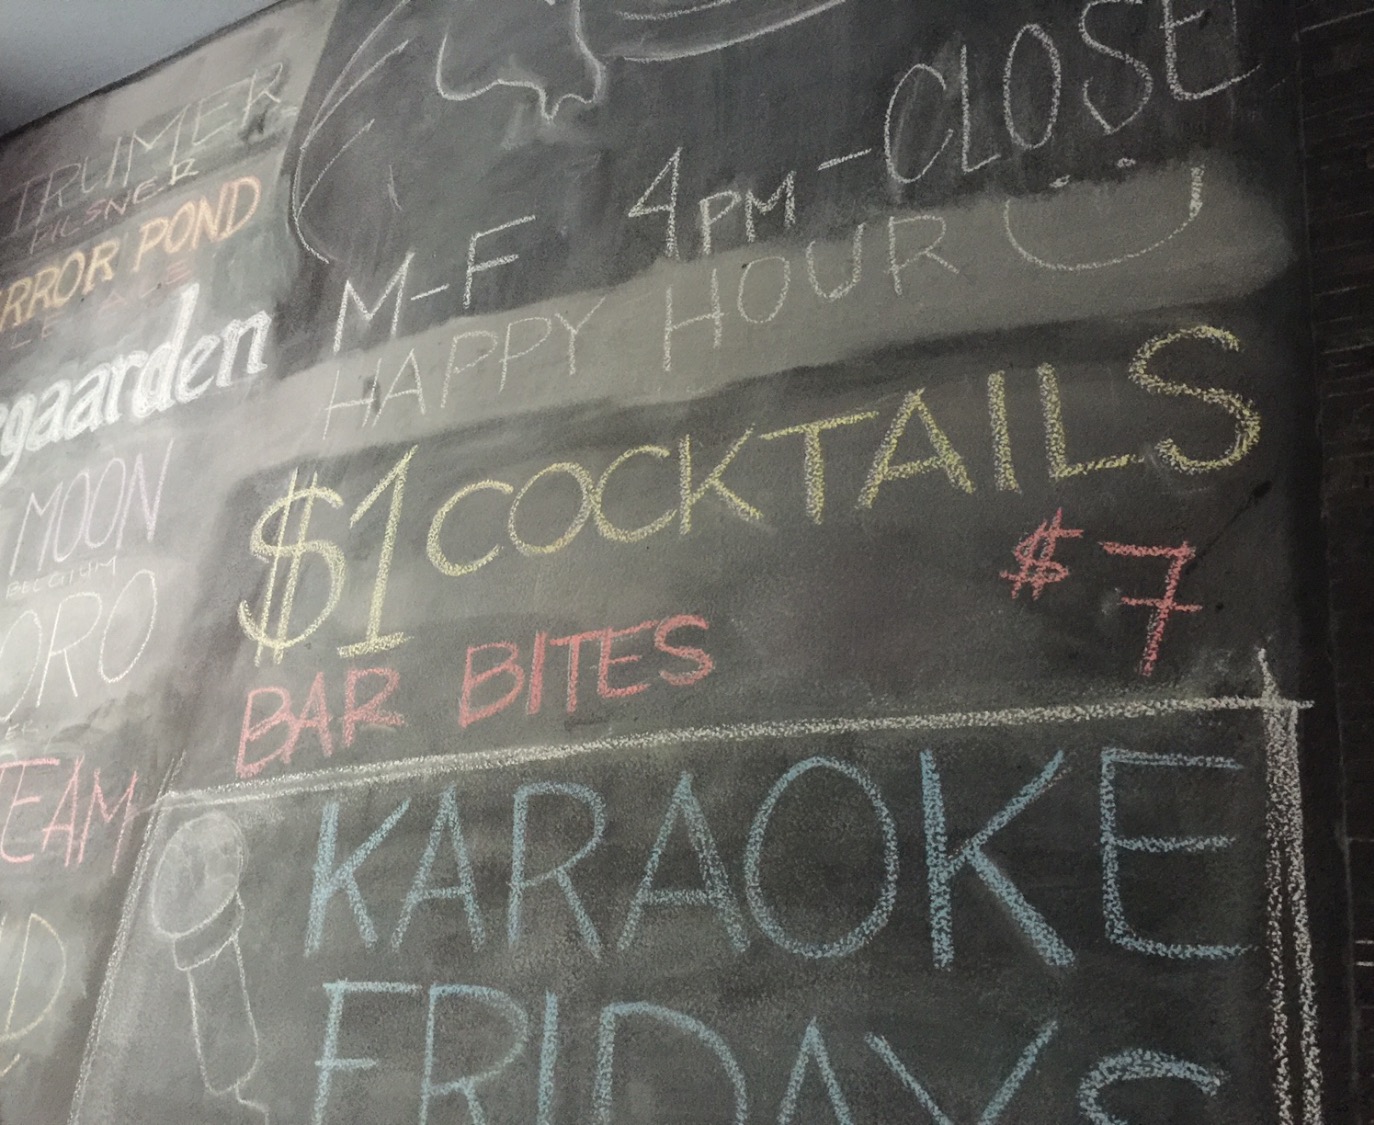 TRUMER
PILSNER
RROR POND
gaarden
MOON
BELGIUM
ORO
TEAM
M-F 4PM-CLOSE
HAPPY HOUR
$1 COCKTAILS
BAR BITES $7
KARAOKE
FRIDAYS